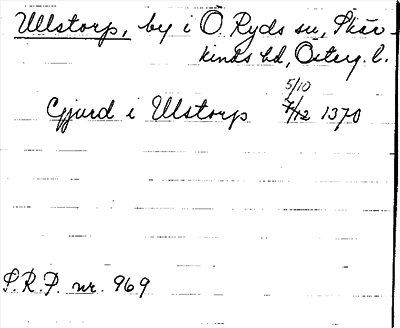 Ullstorp, by i Ö Ryds sn, Skär-
kinds hd, Österg. l.
5/10
Gjurd i Ulstorp 7/12 1370
S.R.P. nr. 969